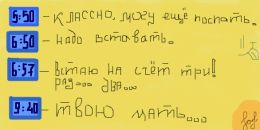 5:50 - КЛАССНО, МОГУ ЕЩЁ ПОСПАТЬ.
6:50 - НАДО ВСТАВАТЬ.
6:57 - ВСТАЮ НА СЧЁТ ТРИ!
РАЗ... ДВА...
9:40 - ТВОЮ МАТЬ...